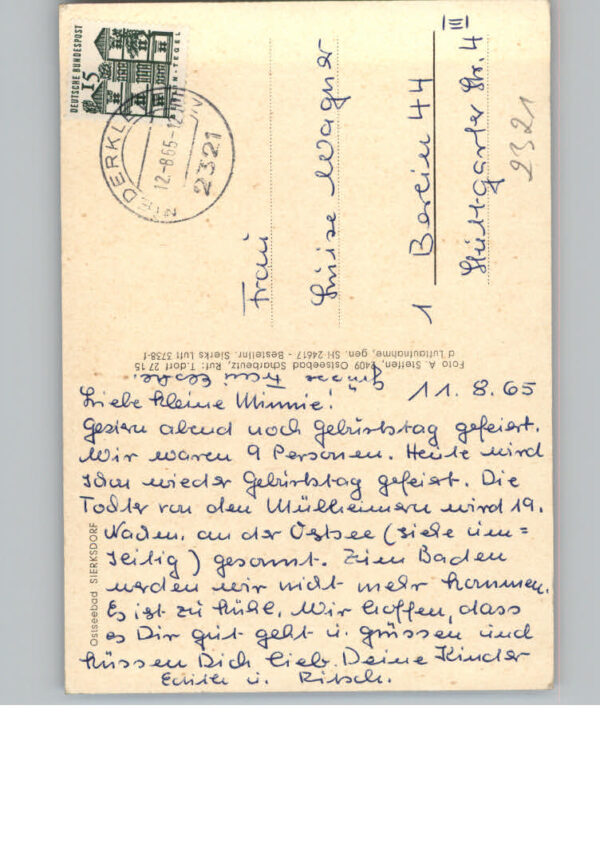 DEUTSCHE BUNDESPOST
15
N-TEGEL
12.-8.65-12
2321
Frau
Luise Wagner
1 Berlin 44
Stuttgarter Str. 4 III
2321
Foto A. Steffen, 2409 Ostseebad Scharbeutz, Ruf: T.dorf 27 15
d Luftaufnahme, gen. SH 24617 - Bestellnr. Sierks Luft 3738-f
Ostseebad SIERKSDORF
Grüsse Frau
11.8.65
Liebe kleine Minnie!
Gestern abend noch Geburtstag gefeiert.
Wir waren 9 Personen. Heute wird
schon wieder Geburtstag gefeiert. Die
Tochter von den Mülheimern wird 19.
Nachm. an der Ostsee (siehe um=
seitig) gesonnt. Zum Baden
werden wir nicht mehr kommen.
Es ist zu kühl. Wir hoffen, dass
es Dir gut geht u. grüssen und
küssen Dich lieb. Deine Kinder
Edith u.